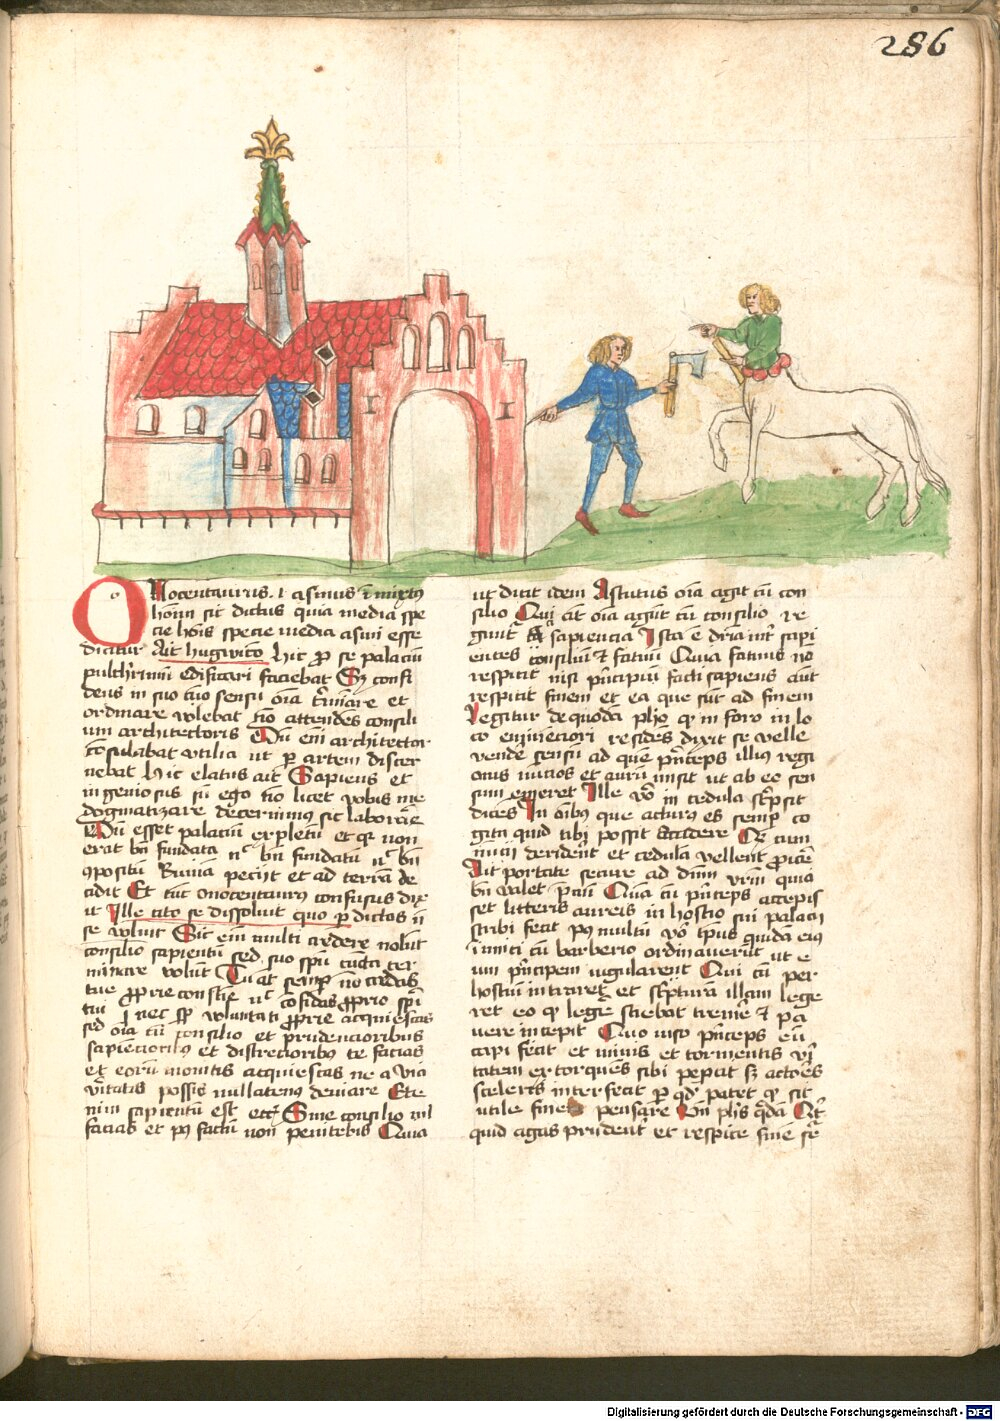 286
Onocentaurus .i. asinus ĩ mixtus
hõim sic dictus quia media spe
cie hoīs specie media asini esse
dicitur Ait hugwico hic p se palaciū
pulcħrimū edificari faciebat Sz confi
deus in suo tm̄ sensu oīa t'minare et
ordinare volebat nō attendēs consili
um architectoris Dū em̄ architector
cōsulabat vtilia ut p artem discer
nebat hic elatus ait Sapiens et
ingeniosus sū ego nō licet vobis me
dogmatizare decernimus sic laborare
Dū esset palaciū expletū et qz non
erat bn̄ fundatū
Ruinā peciit et ad terrā de
cidit Et tūc onocentaurus confusus dix
it Ille cito se dissoluit quo p dictos ñ
se voluit Sic em̄ multi credere nolūt
consilio sapientū sed suo spū cūcta ter
minare volūt Tu at semp nō credas
tue pprie
tui nec voluntati pprie acquiescas
sed oīa cū consilio et prudencioribus
sapiencioribus et discrecioribus te facias
et eorū monitis acquiescas ne a via
v'itatis possis nullatenus deuiare Ete
nim sapientū est etc Sine consilio nil
facias et p9 factū non penitebis Quia
ut dicit idem Astutus oīa agit cū con
silio Qui aūt oīa agūt cū consilio re
gunt' sapiencia Ista ē dr̄ia int' sapi
entes consiliū et fatuū Quia fatuus nō
respicit nisi p'ncipiū facti sapiens aūt
respicit finem et ea que sūt ad finem
Legitur de quodā pħo qz in foro in lo
co eminenciori residēs dixit se velle
vende sensū ad quē p'nceps illius regi
onis nūcios et aurū misit ut ab eo sen
sum emeret Ille v° in cedula sc'psit
dicēs In oībus que acturus es semp co
gita quid tibi possit accidere Qz cum
nūcii derider̄t et cedulā vellent p'icere
Ait portate secure ad dnm̄ vr̄m quia
bn̄ valet p'ciū Quā cū p'nceps accepis
set litteris aureis in hostio sui palacii
scribi fecit p9 multū v° tp̄us quidā eius
inimici cū barberio ordinauerūt ut e
um p'ncipem iugularent Qui cū per
hostiū intraret et sc'pturā illam lege
ret eo qz lege sciebat treme et pa
uere incepit Quo viso p'nceps eū
capi fecit et minis et tormentis v'i
tatem extorquēs sibi pepcit sz actorēs
sceleris interfecit p qd' patet qz sit
utile finem pensare Vn̄ p̄ls qdā
quid agas prudent' et respice finē
Digitalisierung gefördert durch die Deutsche Forschungsgemeinschaft - DFG